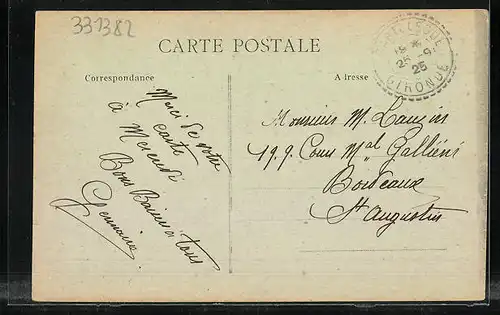 331382
CARTE POSTALE
Correspondance
Adresse
25 -9
25
GIRONDE
Merci de votre
carte
à Mercredi
Bons Baisers à tous
Germaine
Monsieur M.
199 Cours Mal Galliéni
Bordeaux
St Augustin